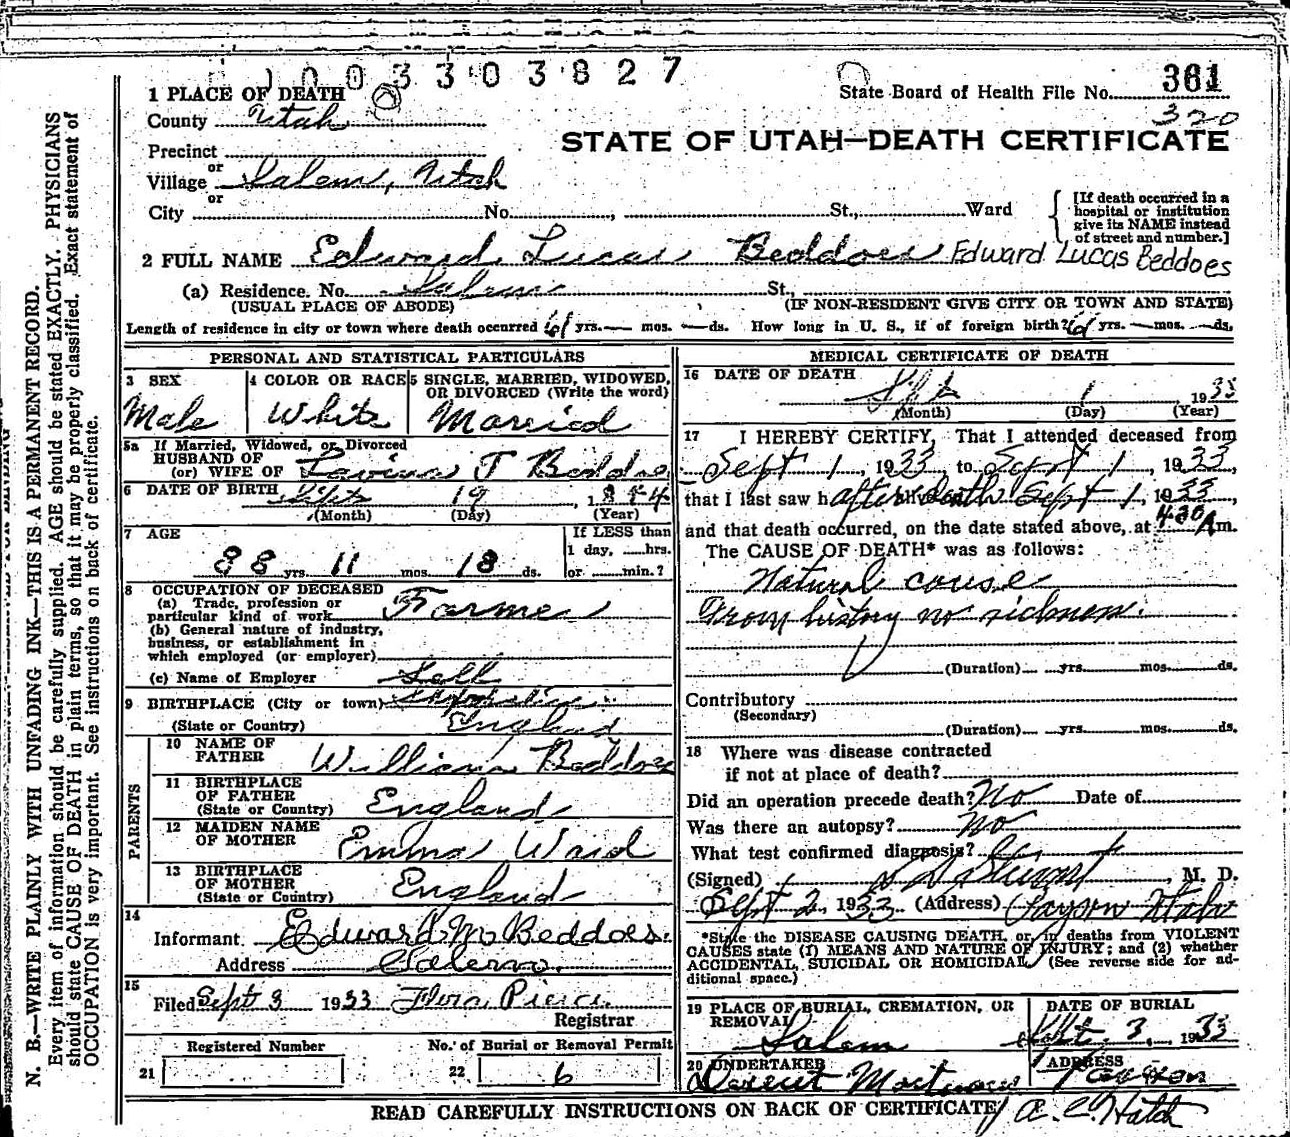 1003303827
State Board of Health File No. 361
320
1 PLACE OF DEATH
County Utah
STATE OF UTAH—DEATH CERTIFICATE
Precinct
or
Village Salem, Utah
or
City No. , St., Ward
[If death occurred in a
hospital or institution
give its NAME instead
of street and number.]
2 FULL NAME Edward Lucas Beddoes Edward Lucas Beddoes
(a) Residence. No. Salem St.,
(USUAL PLACE OF ABODE) (IF NON-RESIDENT GIVE CITY OR TOWN AND STATE)
Length of residence in city or town where death occurred 61 yrs.— mos. —ds. How long in U. S., if of foreign birth? yrs. —mos. —ds.
PERSONAL AND STATISTICAL PARTICULARS
3 SEX 4 COLOR OR RACE 5 SINGLE, MARRIED, WIDOWED,
OR DIVORCED (Write the word)
Male White Married
5a If Married, Widowed, or Divorced
HUSBAND OF
(or) WIFE OF Lavina T Beddoes
6 DATE OF BIRTH Sept 19, 1844
(Month) (Day) (Year)
7 AGE If LESS than
1 day, ......hrs.
88 yrs. 11 mos. 18 ds. or ......min.?
8 OCCUPATION OF DECEASED
(a) Trade, profession or
particular kind of work Farmer
(b) General nature of industry,
business, or establishment in
which employed (or employer)
(c) Name of Employer Self
9 BIRTHPLACE (City or town)
(State or Country) England
PARENTS
10 NAME OF
FATHER William Beddoes
11 BIRTHPLACE
OF FATHER
(State or Country) England
12 MAIDEN NAME
OF MOTHER Emma
13 BIRTHPLACE
OF MOTHER
(State or Country) England
14
Informant Edward M Beddoes.
Address Salem.
15
Filed Sept 3 1933 Flora Pierce
Registrar
Registered Number No. of Burial or Removal Permit
21 22 6
MEDICAL CERTIFICATE OF DEATH
16 DATE OF DEATH
Sept 1 1933
(Month) (Day) (Year)
17 I HEREBY CERTIFY, That I attended deceased from
Sept 1, 1933, to Sept 1, 1933,
that I last saw h after death Sept 1, 1933,
and that death occurred, on the date stated above, at 4:30 A m.
The CAUSE OF DEATH* was as follows:
Natural cause
From history no sickness.
(Duration) yrs. mos. ds.
Contributory
(Secondary)
(Duration) yrs. mos. ds.
18 Where was disease contracted
if not at place of death?
Did an operation precede death? No Date of
Was there an autopsy? No
What test confirmed diagnosis?
(Signed) , M. D.
Sept 2, 1933 (Address) Payson Utah
*State the DISEASE CAUSING DEATH, or in deaths from VIOLENT
CAUSES state (1) MEANS AND NATURE OF INJURY; and (2) whether
ACCIDENTAL, SUICIDAL OR HOMICIDAL. (See reverse side for ad-
ditional space.)
19 PLACE OF BURIAL, CREMATION, OR
REMOVAL
Salem
DATE OF BURIAL
Sept. 3, 1933
20 UNDERTAKER
Mortuary
ADDRESS
Payson
READ CAREFULLY INSTRUCTIONS ON BACK OF CERTIFICATE
A. C. Hatch
N. B.—WRITE PLAINLY WITH UNFADING INK—THIS IS A PERMANENT RECORD.
Every item of information should be carefully supplied. AGE should be stated EXACTLY. PHYSICIANS
should state CAUSE OF DEATH in plain terms, so that it may be properly classified. Exact statement of
OCCUPATION is very important. See instructions on back of certificate.